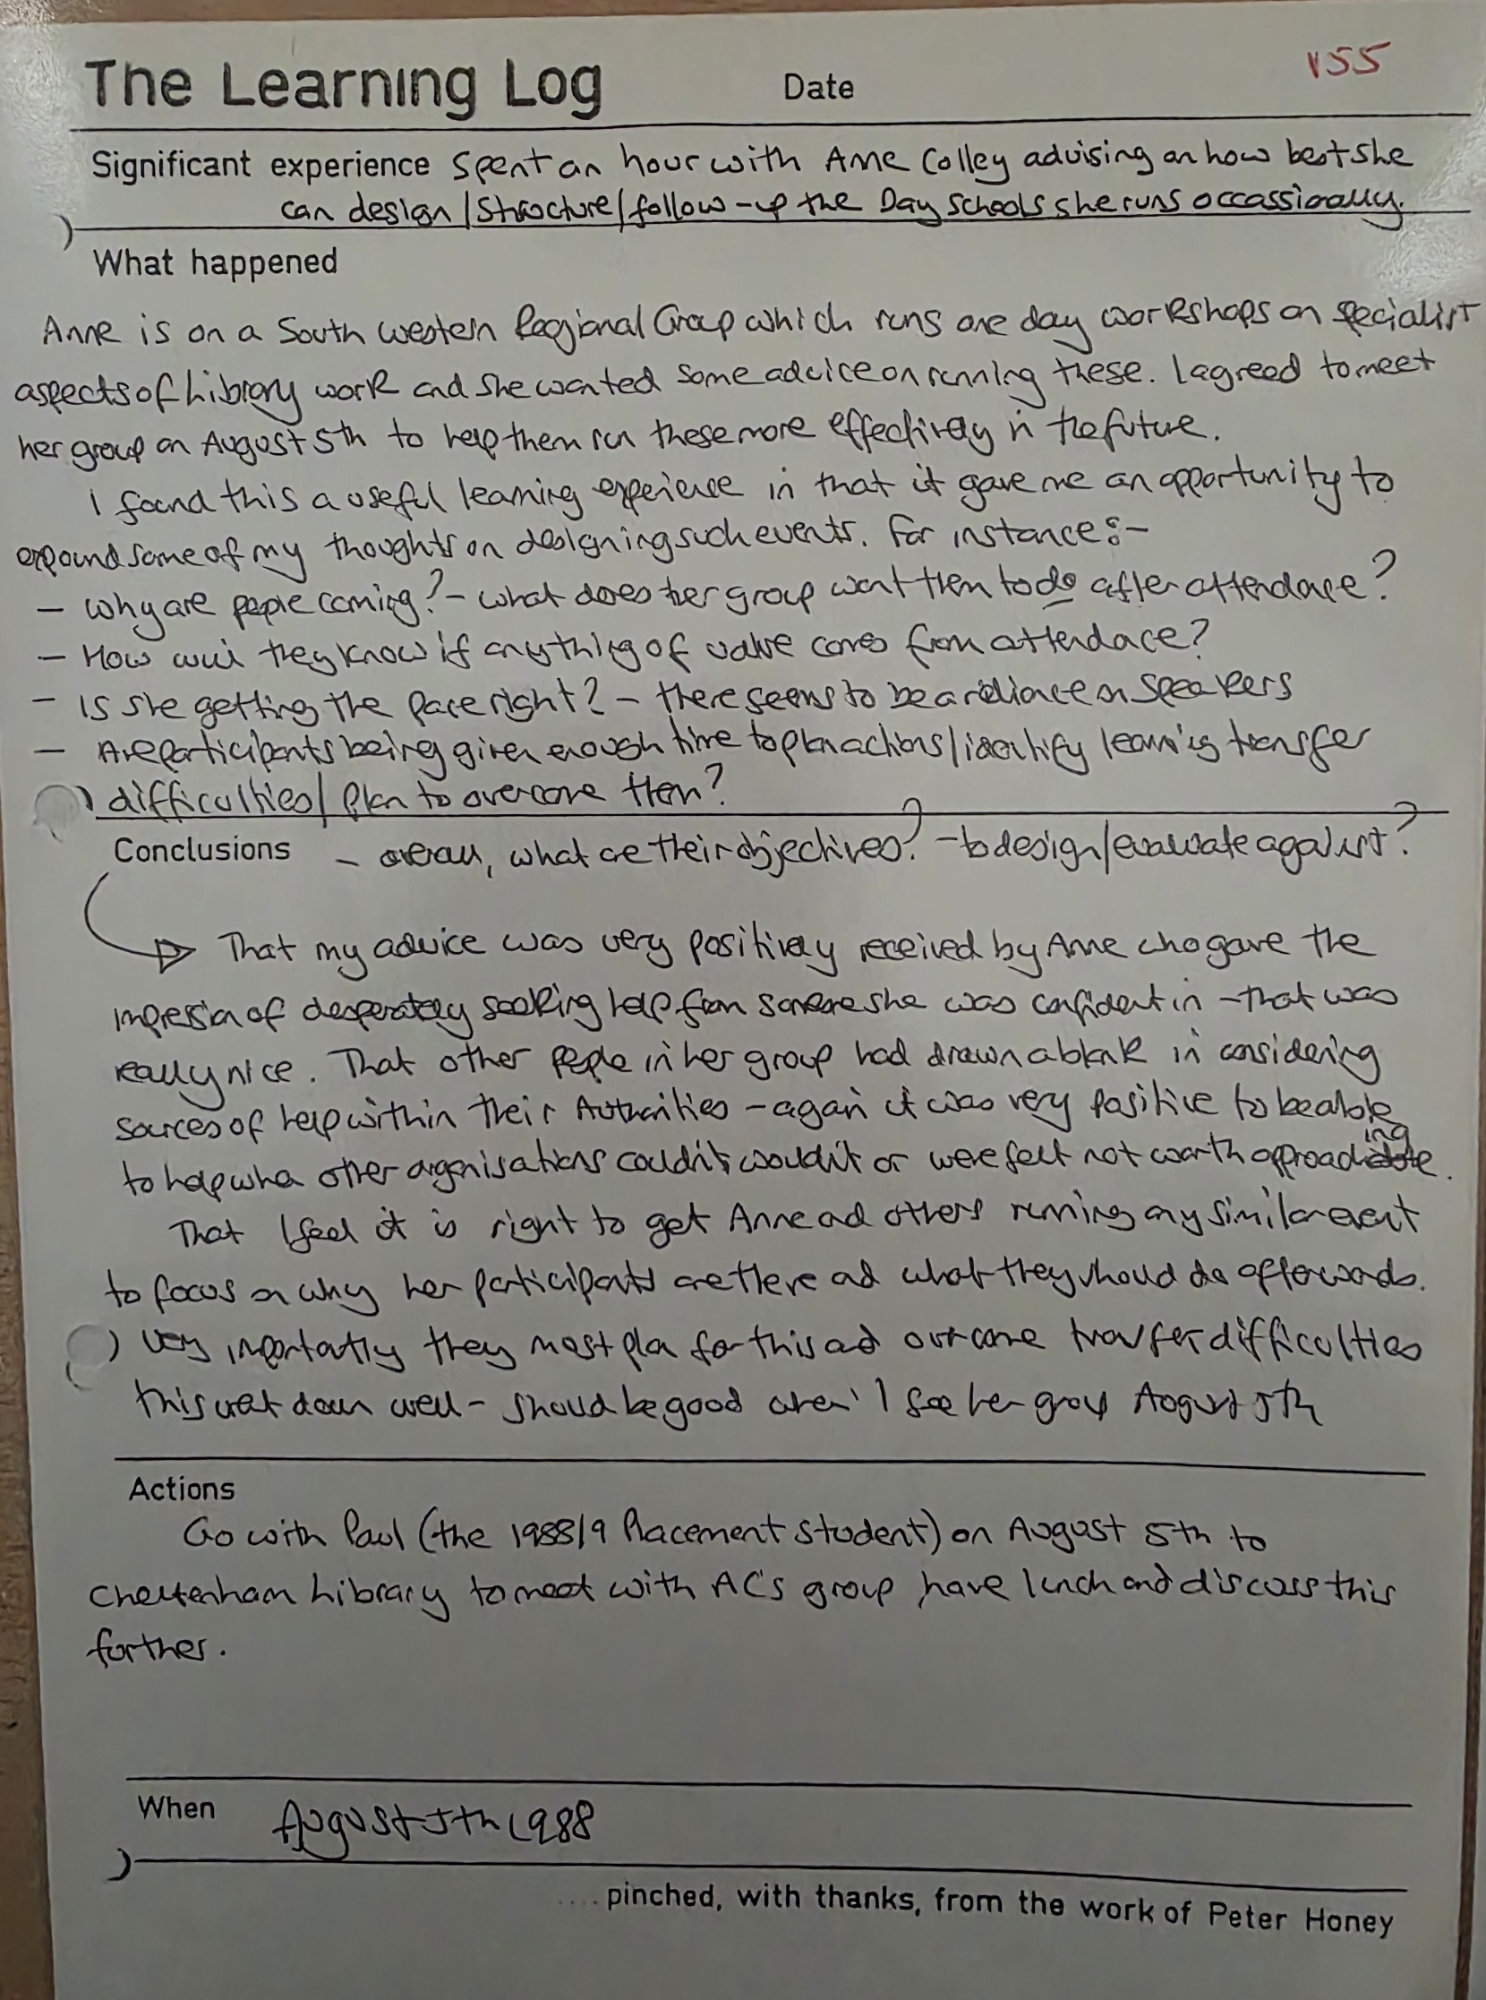 The Learning Log Date 155
Significant experience Spent an hour with Anne Colley advising on how best she
can design/structure/follow-up the Day Schools she runs occassionally.
What happened
Anne is on a South Western Regional Group which runs one day workshops on specialist
aspects of Library work and she wanted some advice on running these. I agreed to meet
her group on August 5th to help them run these more effectively in the future.
I found this a useful learning experience in that it gave me an opportunity to
expound some of my thoughts on designing such events. For instance:-
- Why are people coming? - what does her group want them to do after attendance?
- How will they know if anything of value comes from attendace?
- Is she getting the pace right? - there seems to be a reliance on speakers
- Are participants being given enough time to plan actions/identify learning transfer
difficulties/plan to overcome them?
Conclusions - overall, what are their objectives? - to design/evaluate against?
That my advice was very positively received by Anne who gave the
impression of desperately seeking help from someone she was confident in - that was
really nice. That other people in her group had drawn a blank in considering
sources of help within their Authorities - again it was very positive to be able
to help when other organisations couldn't, wouldn't or were felt not worth approaching.
That I feel it is right to get Anne and others running any similar event
to focus on why her participants are there and what they should do afterwards.
Very importantly they must plan for this and overcome transfer difficulties
this went down well - should be good when I see her group August 5th
Actions
Go with Paul (the 1988/9 Placement Student) on August 5th to
Cheltenham Library to meet with AC's group, have lunch and discuss this
further.
When August 5th 1988
.... pinched, with thanks, from the work of Peter Honey